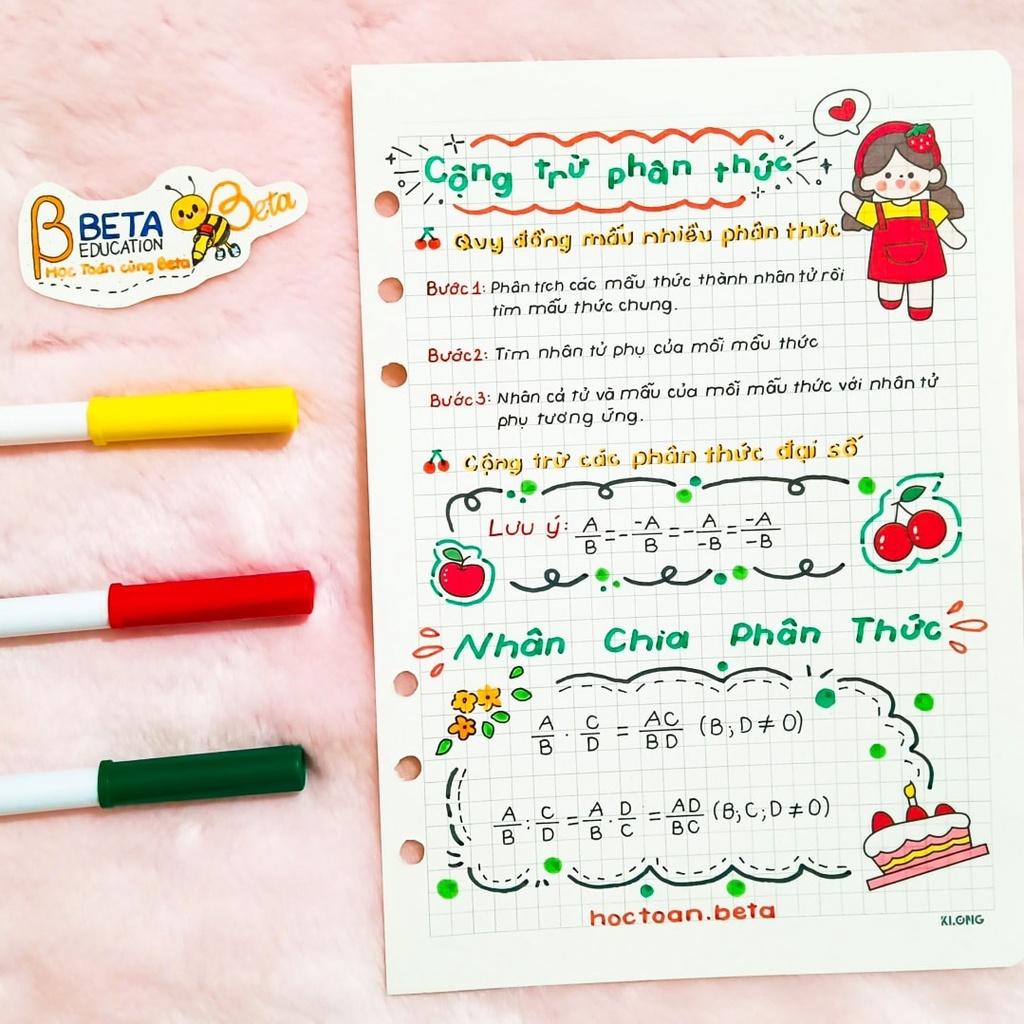 β BETA Beta
EDUCATION
Học Toán cùng Beta
Cộng trừ phân thức
Quy đồng mẫu nhiều phân thức
Bước 1: Phân tích các mẫu thức thành nhân tử rồi
tìm mẫu thức chung.
Bước 2: Tìm nhân tử phụ của mỗi mẫu thức
Bước 3: Nhân cả tử và mẫu của mỗi mẫu thức với nhân tử
phụ tương ứng.
Cộng trừ các phân thức đại số
Lưu ý: A/B = - -A/B = - A/-B = -A/-B
Nhân Chia Phân Thức
A/B . C/D = AC/BD (B; D ≠ 0)
A/B : C/D = A/B . D/C = AD/BC (B; C; D ≠ 0)
hoctoan.beta
KLONG